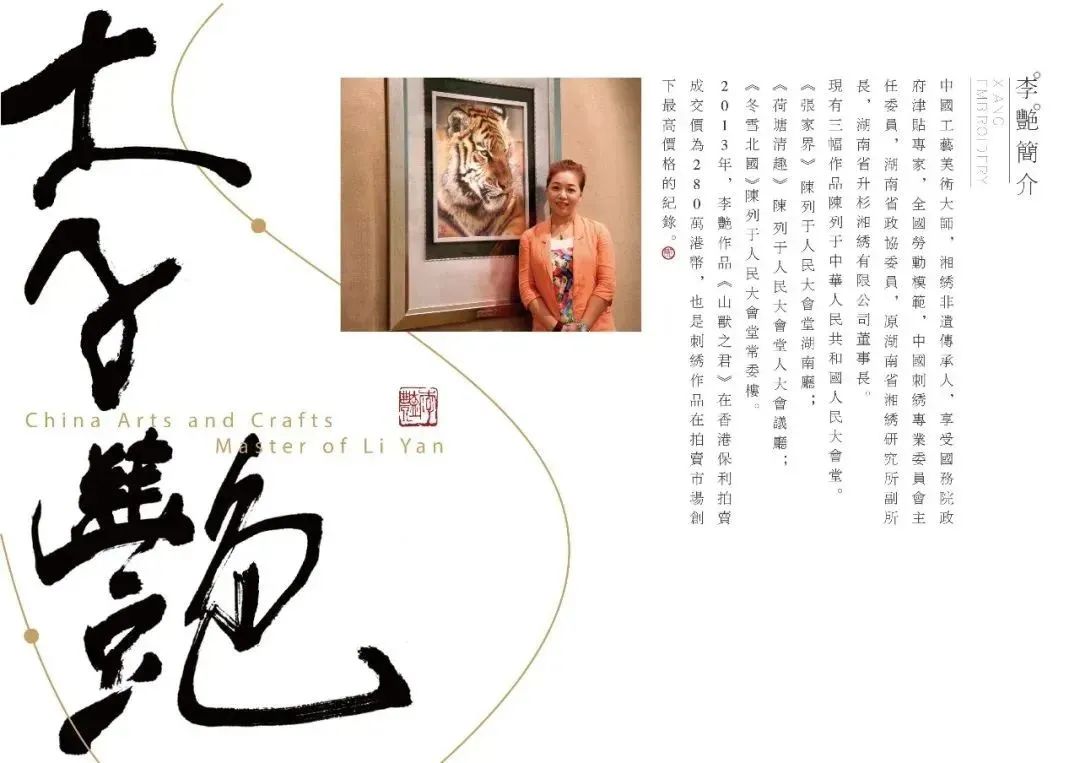 李艷簡介
XIANG
EMBROIDERY
中國工藝美術大師，湘綉非遺傳承人，享受國務院政
府津貼專家，全國勞動模範，中國刺綉專業委員會主
任委員，湖南省政協委員，原湖南省湘綉研究所副所
長，湖南省升杉湘綉有限公司董事長。
現有三幅作品陳列于中華人民共和國人民大會堂。
《張家界》陳列于人民大會堂湖南廳；
《荷塘清趣》陳列于人民大會堂人大會議廳；
《冬雪北國》陳列于人民大會堂常委樓。
2013年，李艷作品《山獸之君》在香港保利拍賣
成交價為280萬港幣，也是刺綉作品在拍賣市場創
下最高價格的紀錄。
李艷
China Arts and Crafts
Master of Li Yan
李艷